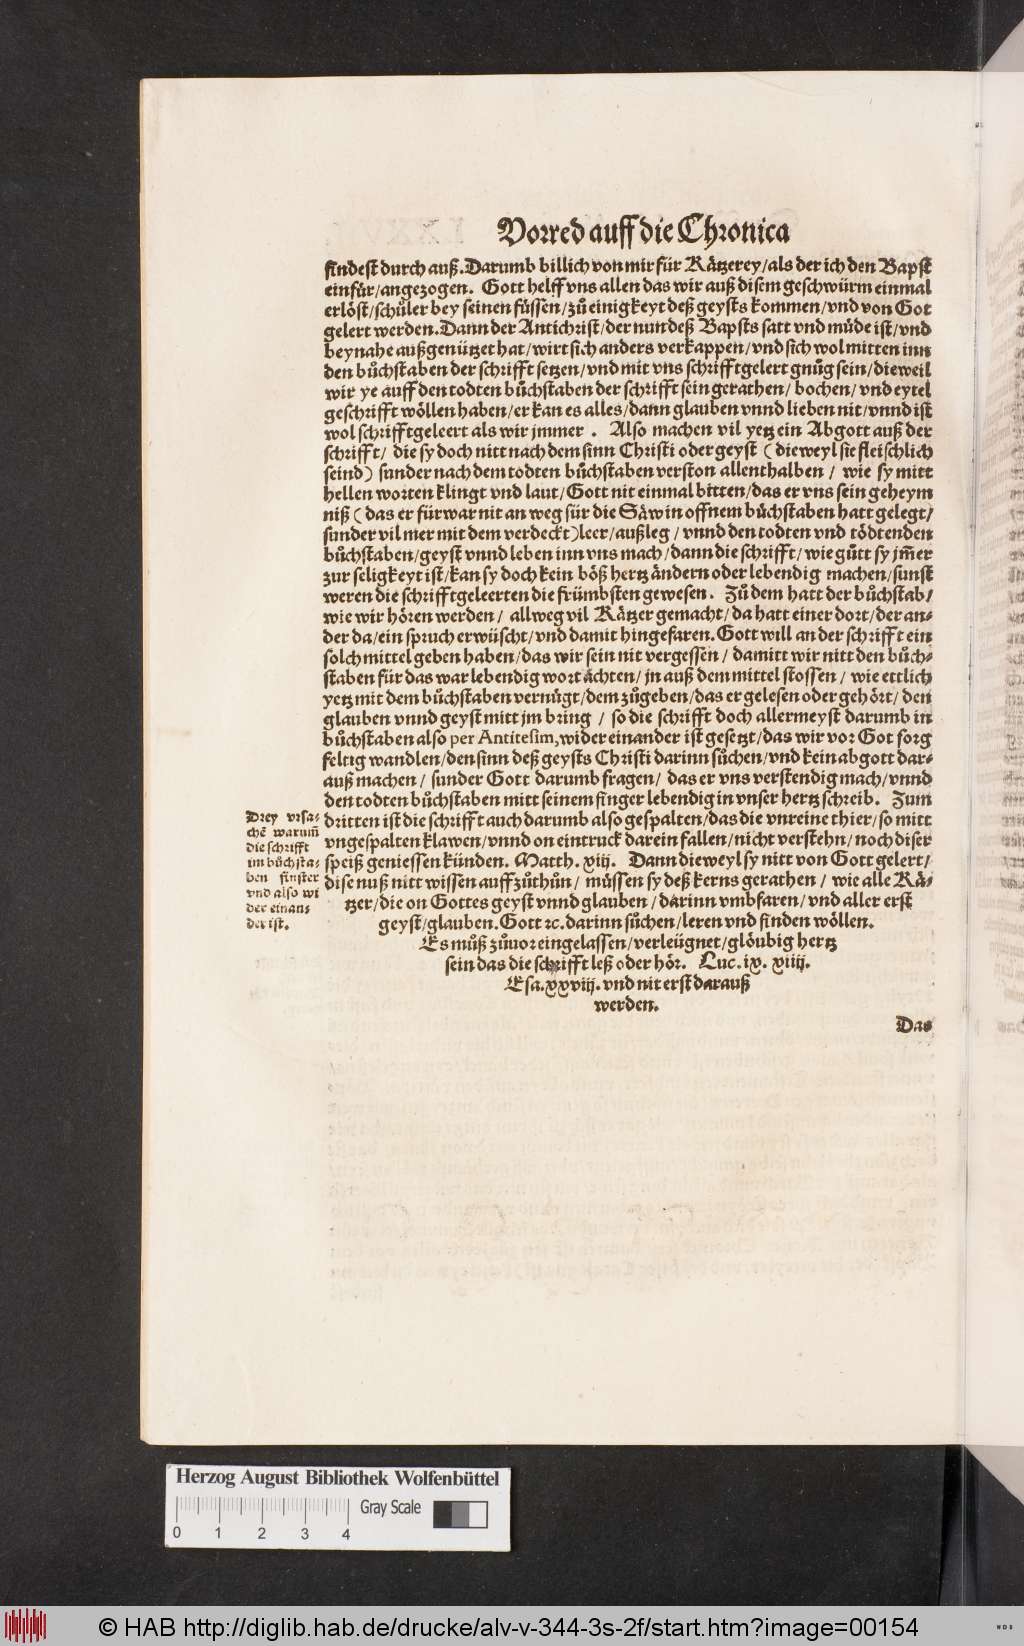 Vorred auff die Chronica
findest durch auß. Darumb billich von mir für Kätzerey/als der ich den Bapst
einfür/angezogen. Gott helff vns allen das wir auß disem geschwürm einmal
erlöst/schůler bey seinen füssen/zů einigkeyt deß geysts kommen/vnd von Got
gelert werden. Dann der Antichrist/der nun deß Bapsts satt vnd můde ist/vnd
beynahe außgenützet hat/wirt sich anders verkappen/vnd sich wol mitten inn
den bůchstaben der schrifft setzen/vnd mit vns schrifftgelert gnůg sein/dieweil
wir ye auff den todten bůchstaben der schrifft sein gerathen/bochen/vnd eytel
geschrifft wöllen haben/er kan es alles/dann glauben vnnd lieben nit/vnnd ist
wol schrifftgeleert als wir jmmer. Also machen vil yetz ein Abgott auß der
schrifft/ die sy doch nitt nach dem sinn Christi oder geyst (dieweyl sie fleischlich
seind) sunder nach dem todten bůchstaben verston allenthalben/ wie sy mitt
hellen worten klingt vnd laut/Gott nit einmal bitten/das er vns sein geheym
niß (das er fürwar nit an weg für die Säw in offnem bůchstaben hatt gelegt/
sunder vil mer mit dem verdeckt) leer/außleg/ vnnd den todten vnd tödtenden
bůchstaben/geyst vnnd leben inn vns mach/dann die schrifft/wie gůtt sy jm̃er
zur seligkeyt ist/kan sy doch kein böß hertz ändern oder lebendig machen/sunst
weren die schrifftgeleerten die frümbsten gewesen. Zů dem hatt der bůchstab/
wie wir hören werden/ allweg vil Kätzer gemacht/da hatt einer dort/der an-
der da/ein spruch erwüscht/vnd damit hingefaren. Gott will an der schrifft ein
solch mittel geben haben/das wir sein nit vergessen/ damitt wir nitt den bůch-
staben für das war lebendig wort ächten/ jn auß dem mittel stossen/ wie ettlich
yetz mit dem bůchstaben vernügt/dem zůgeben/das er gelesen oder gehört/ den
glauben vnnd geyst mitt jm bring/ so die schrifft doch allermeyst darumb in
bůchstaben also per Antitesim, wider einander ist gesetzt/das wir vor Got sorg
feltig wandlen/den sinn deß geysts Christi darinn sůchen/vnd kein abgott dar-
auß machen/ sunder Gott darumb fragen/ das er vns verstendig mach/vnnd
den todten bůchstaben mitt seinem finger lebendig in vnser hertz schreib. Zum
dritten ist die schrifft auch darumb also gespalten/das die vnreine thier/so mitt
vngespalten klawen/vnnd on eintruck darein fallen/nicht verstehn/noch diser
speiß geniessen künden. Matth. xiij. Dann dieweyl sy nitt von Gott gelert/
dise nuß nitt wissen auffzůthůn/ müssen sy deß kerns gerathen/ wie alle Kä-
tzer/die on Gottes geyst vnnd glauben/ darinn vmbfaren/vnd aller erst
geyst/glauben. Gott ꝛc. darinn sůchen/leren vnd finden wöllen.
Es můß zůuor eingelassen/verleügnet/glöubig hertz
sein das die schrifft leß oder hör. Luc. ix. xiiij.
Esa. xxviij. vnd nit erst darauß
werden.
Das
Drey vrsa-
chẽ warum̃
die schrifft
im bůchsta-
ben finster
vnd also wi
der einan-
der ist.
Herzog August Bibliothek Wolfenbüttel
Gray Scale
0 1 2 3 4
© HAB http://diglib.hab.de/drucke/alv-v-344-3s-2f/start.htm?image=00154